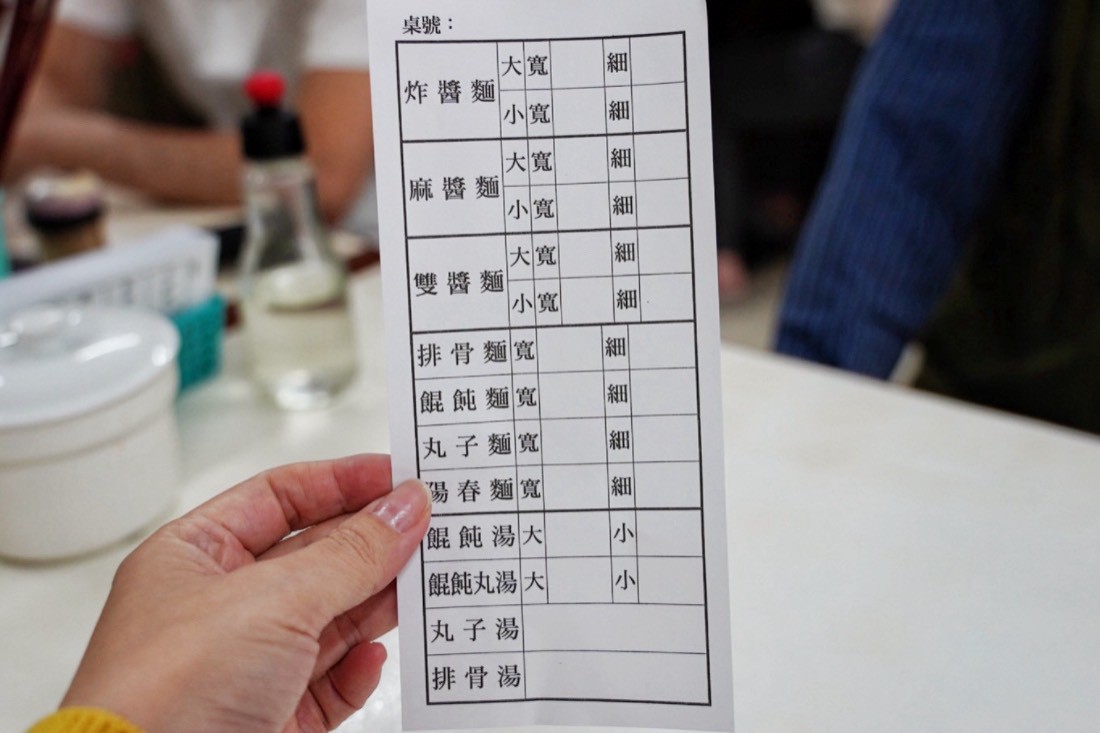 桌號：
炸醬麵 大 寬 細
小 寬 細
麻醬麵 大 寬 細
小 寬 細
雙醬麵 大 寬 細
小 寬 細
排骨麵 寬 細
餛飩麵 寬 細
丸子麵 寬 細
陽春麵 寬 細
餛飩湯 大 小
餛飩丸湯 大 小
丸子湯
排骨湯